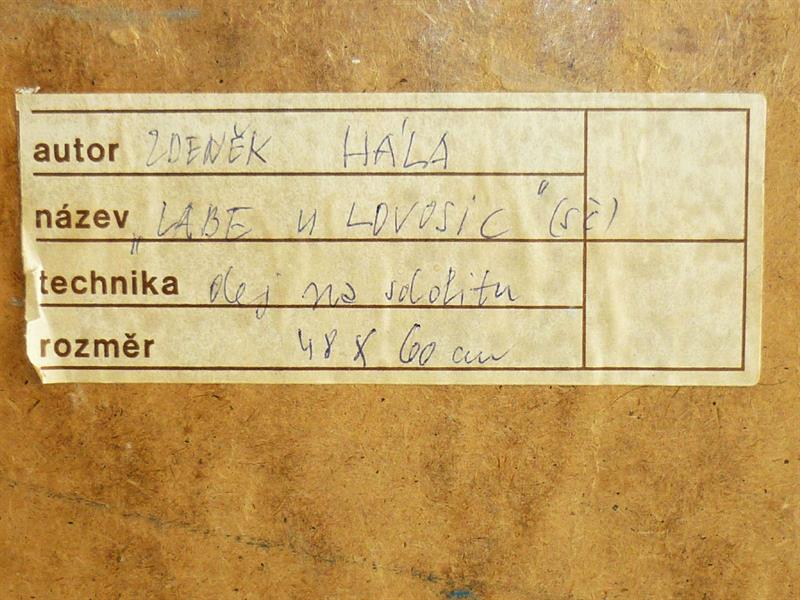 autor ZDENĚK HÁLA
název „LABE U LOVOSIC“ (SČ)
technika olej na sololitu
rozměr 48 x 60 cm